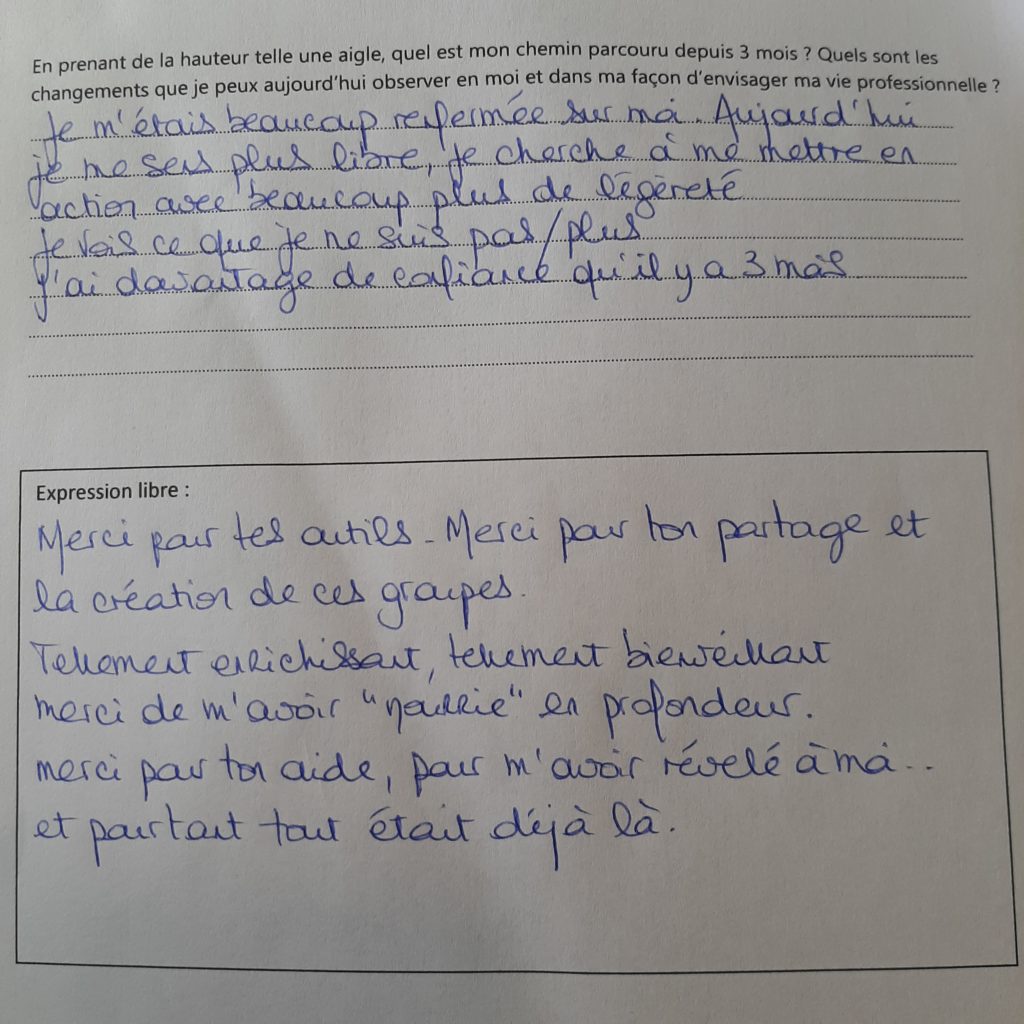 En prenant de la hauteur telle une aigle, quel est mon chemin parcouru depuis 3 mois ? Quels sont les
changements que je peux aujourd'hui observer en moi et dans ma façon d'envisager ma vie professionnelle ?
Je m'étais beaucoup renfermée sur moi. Aujourd'hui
je me sens plus libre, je cherche à me mettre en
action avec beaucoup plus de légèreté
Je vois ce que je ne suis pas/plus
J'ai davantage de confiance qu'il y a 3 mois
Expression libre :
Merci pour tes outils - Merci pour ton partage et
la création de ces groupes.
Tellement enrichissant, tellement bienveillant
merci de m'avoir "nourrie" en profondeur.
merci pour ton aide, pour m'avoir révelé à moi..
et pourtant tout était déjà là.